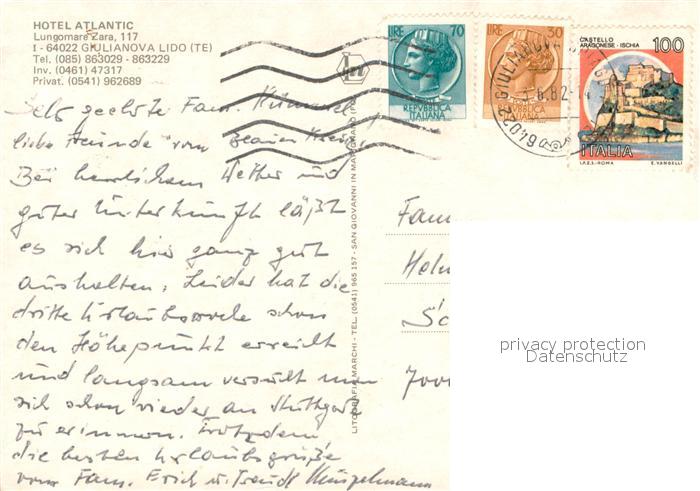 HOTEL ATLANTIC
Lungomare Zara, 117
I - 64022 GIULIANOVA LIDO (TE)
Tel. (085) 863029 - 863229
Inv. (0461) 47317
Privat. (0541) 962689
Sehr geehrte Fam.
liebe Freunde vom Blauen Kreuz
Bei herrlichem Wetter und
guter Unterkunft läßt
es sich hier ganz gut
aushalten. Leider hat die
dritte Urlaubswoche schon
den Höhepunkt erreicht
und langsam versucht man
sich schon wieder an Stuttgart
zu erinnern. Trotzdem
die besten Urlaubsgrüße
von Fam. Erich u. Trudl
LITOGRAFIA MARCHI - TEL. (0541) 965 157 - SAN GIOVANNI IN MARIGNANO
LIRE 70
REPVBBLICA
ITALIANA
LIRE 30
REPVBBLICA
ITALIANA
CASTELLO
ARAGONESE - ISCHIA
100
ITALIA
I.P.Z.S. - ROMA E. VANGELLI
GIULIANOVA
8.82
64022
Fam
700
privacy protection
Datenschutz